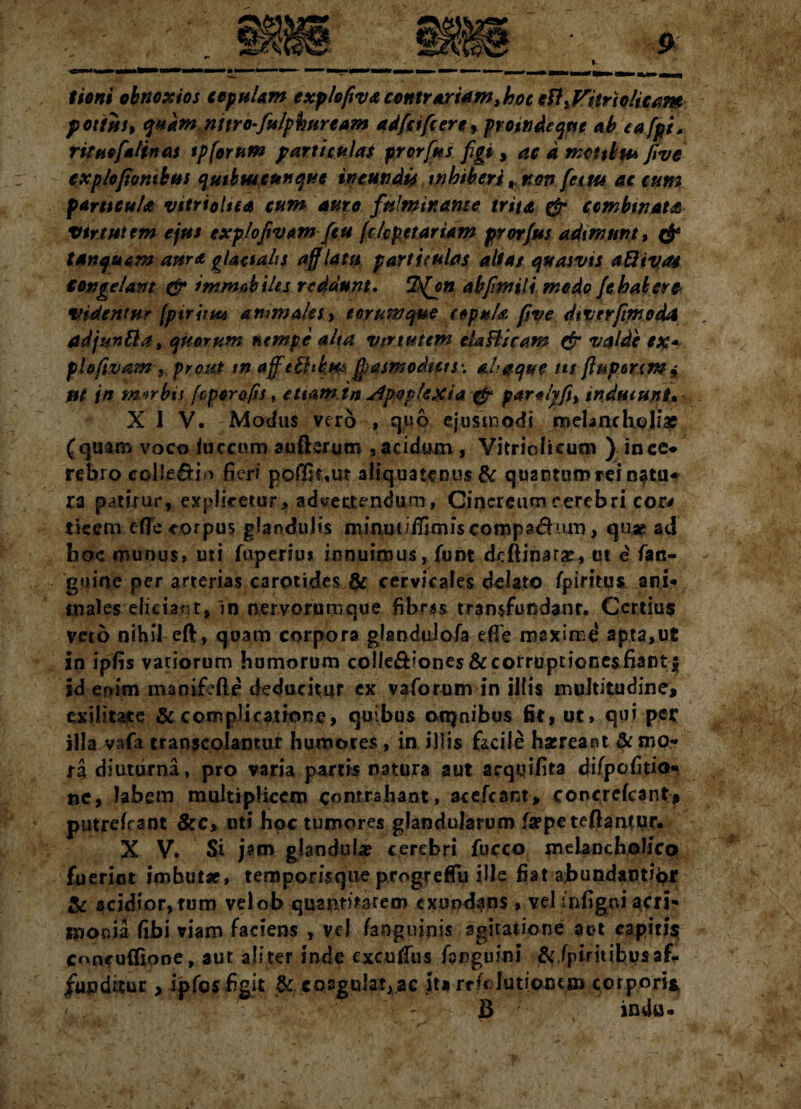 9
tioni obnoxios copulam explosivæ contrariam, hoc est, Vitriolicam
potius, quàm nitro-sulphuream adsciscere, proindeque ab ea spi-
rituosalinas ipsorum particulas prorsus figi, ac à motibus sive
explosionibus quibuscunque ineundis inhiberi, non secus ac cum
particulæ vitriolicæ cum auro fulminante tritæ & combinatæ
virtutem ejus explosivam seu sclopetariam prorsus adimunt, &
tanquam auræ glacialis afflatu particulas alias quasvis activas
congelant & immobiles reddunt. Non absimili modo se habere
videntur spiritus animales, eorumque copulæ sive diversimoda
adjuncta, quorum nempe alia virtutem elasticam & valde ex-
plosivam, prout in affectibus spasmodicis; aliaque iis stuporem,
ut in morbis soporosis, etiam in Apoplexia & paralysi, inducunt.
XIV. Modus verò, quò ejusmodi melancholiæ
(quam voco succum austerum, acidum, Vitriolicum) in ce-
rebro collectio fieri possit, ut aliquatenus & quantum rei natu-
ra patitur, explicetur, advertendum, Cinereum cerebri cor-
ticem esse corpus glandulis minutissimis compactum, quæ ad
hoc munus, uti superius innuimus, sunt destinatæ, ut è san-
guine per arterias carotides & cervicales delato spiritus ani-
males eliciant, in nervorumque fibras transfundant. Certius
verò nihil est, quam corpora glandulosa esse maximè apta, ut
in ipsis variorum humorum collectiones & corruptiones fiant;
id enim manifestè deducitur ex vasorum in illis multitudine,
exilitate & complicatione, quibus omnibus fit, ut, qui per
illa vasa transcolantur humores, in illis facilè hæreant & mo-
râ diuturnâ, pro varia partis natura aut acquisita dispositio-
ne, labem multiplicem contrahant, acescant, concrescant,
putrescant &c, uti hoc tumores glandularum sæpe testantur.
XV. Si jam glandulæ cerebri succo melancholico
fuerint imbutæ, temporisque progressu ille fiat abundantior
& acidior, tum vel ob quantitatem exundans, vel insigni acri-
moniâ sibi viam faciens, vel sanguinis agitatione aut capitis
concussione, aut aliter inde excussus sanguini & spiritibus af-
funditur, ipsos figit & coagulat, ac ita resolutionem corporis
B indu-